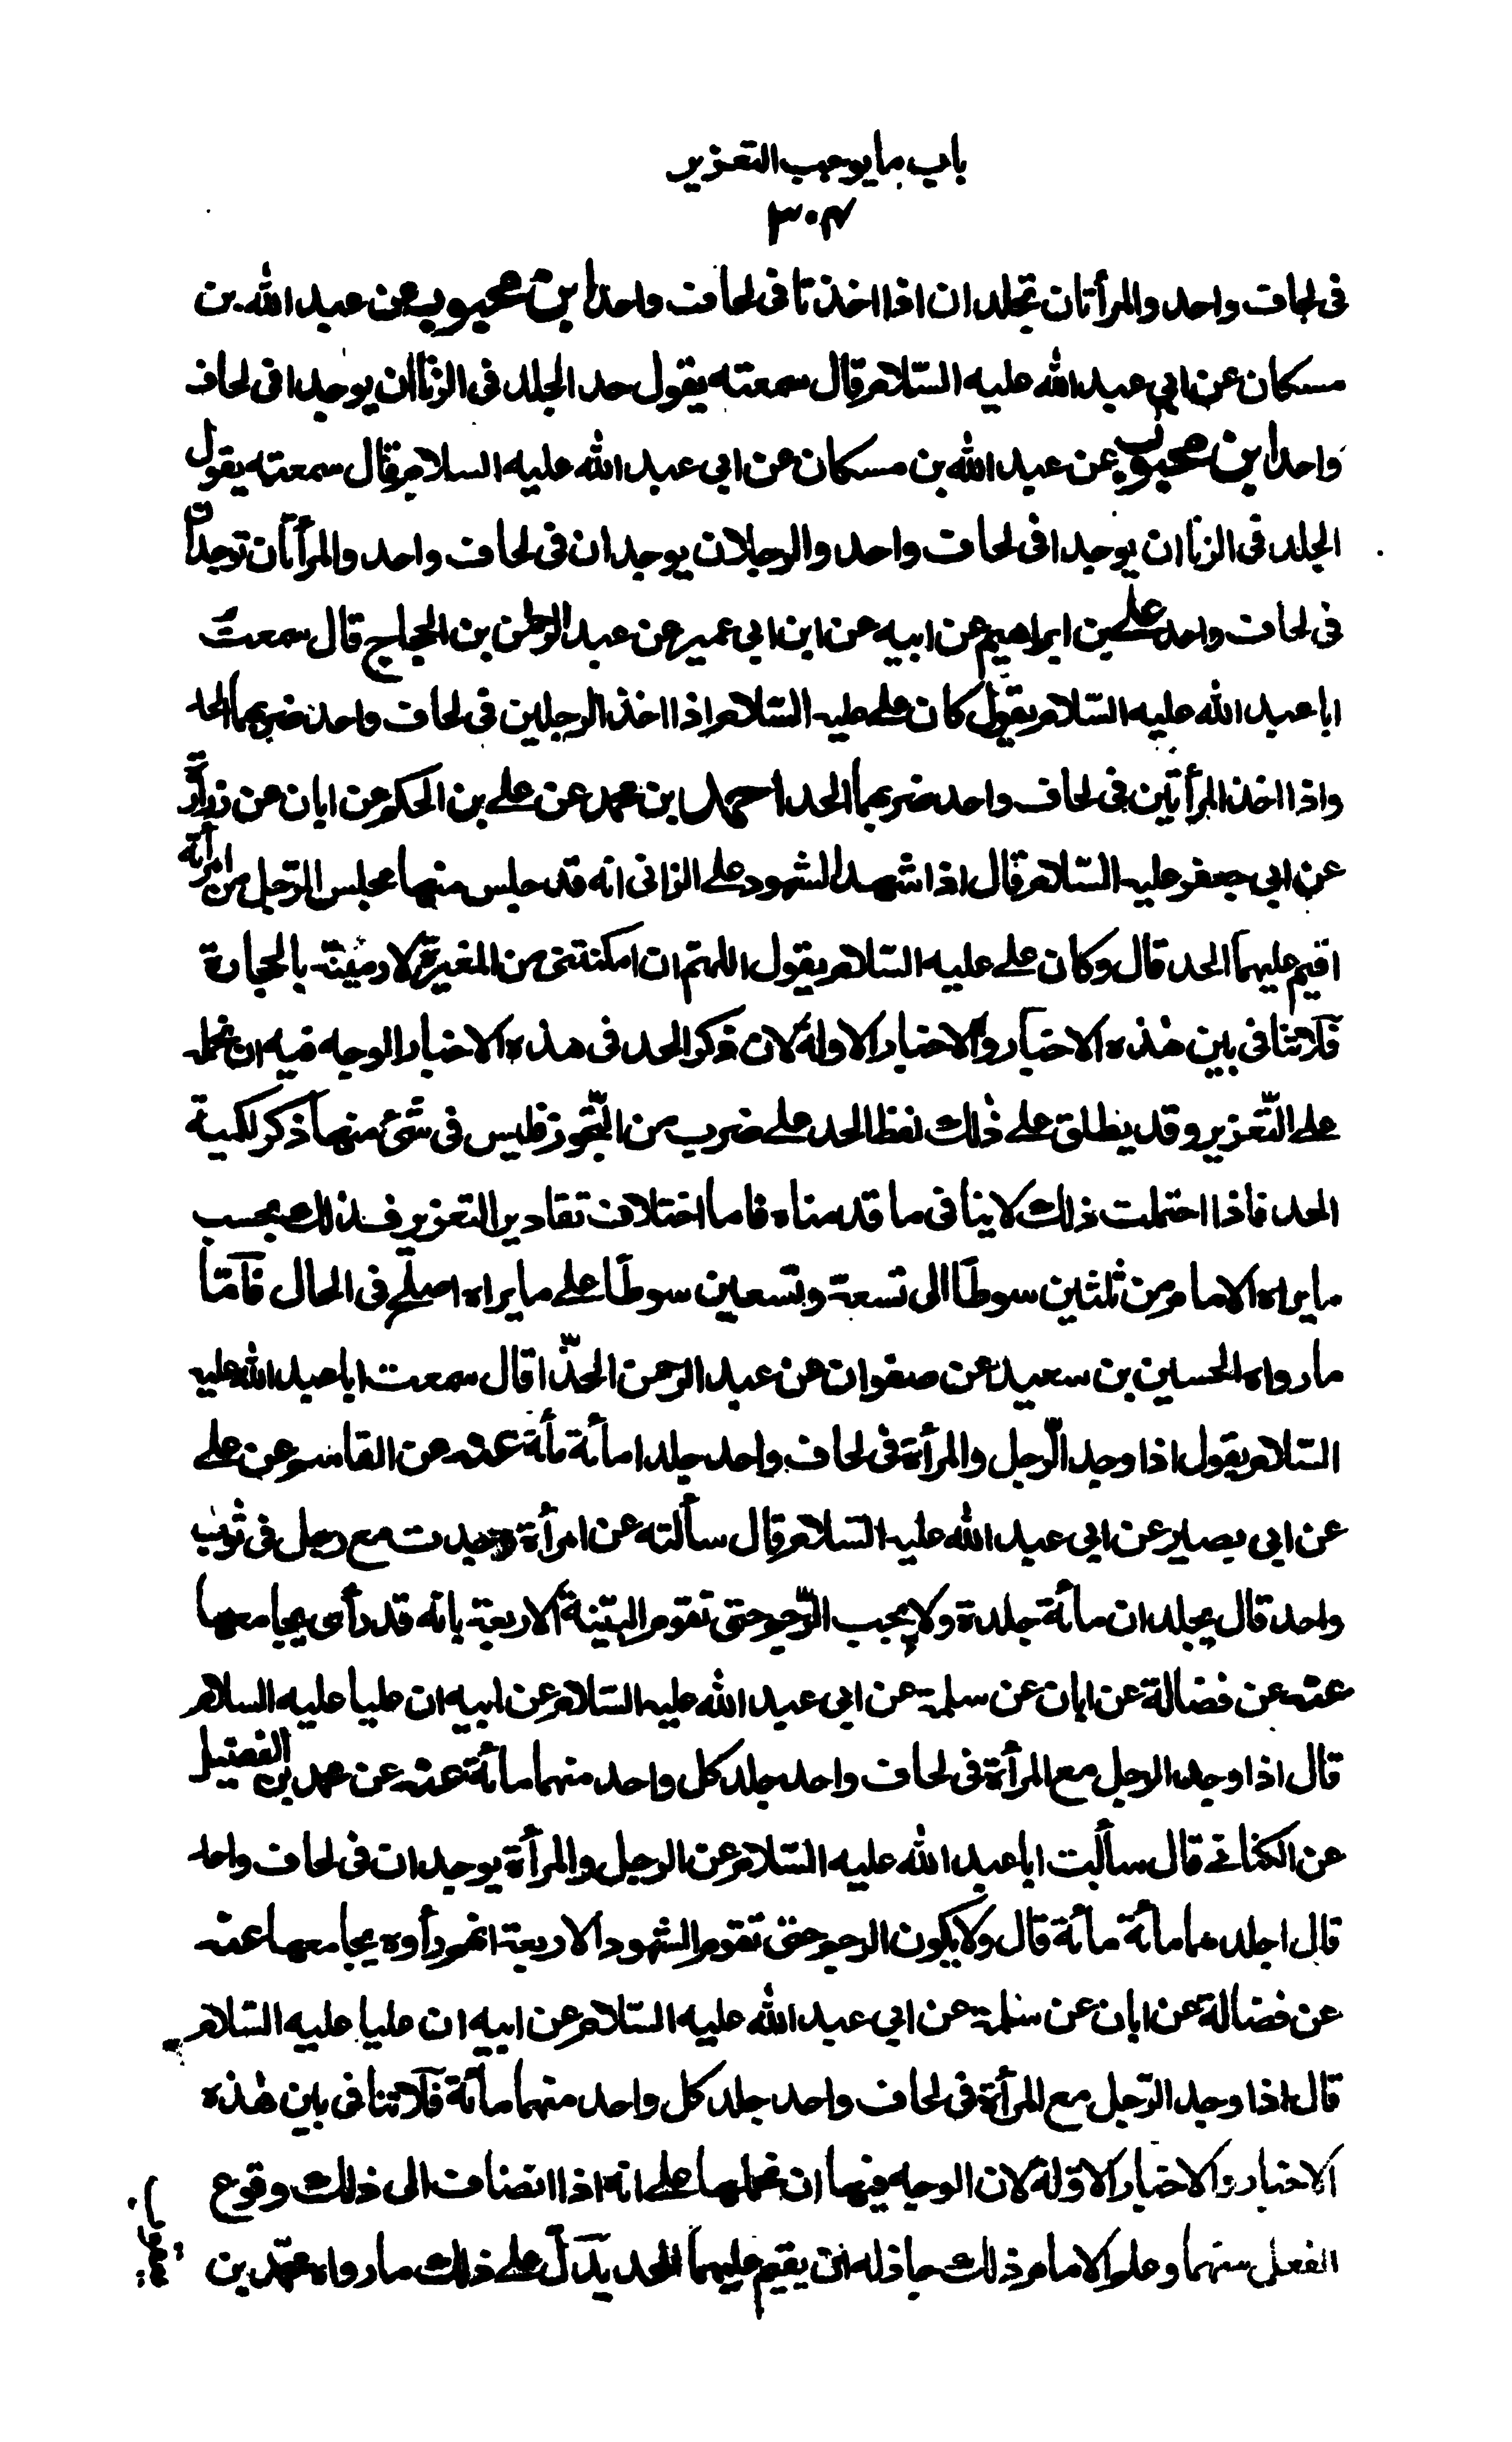 باب ما يوجب التعزير
٣٠٣
فى لحاف واحد والمرأتان تجلدان اذا اخذتا فى لحاف واحد ابن محبوب عن عبد الله بن
مسكان عن ابي عبد الله عليه السّلام قال سمعته يقول حد الجلد فى الزنا ان يوجدا فى لحاف
واحد ابن محبوب عن عبد الله بن مسكان عن ابى عبد الله عليه السلام قال سمعته يقول
الجلد فى الزنا ان يوجدا فى لحاف واحد والرجلان يوجدان فى لحاف واحد والمرأتان توجدان
فى لحاف واحد على بن ابراهيم عن ابيه عن ابن ابى عمير عن عبد الرحمٰن بن الحجاج قال سمعت
ابا عبد الله عليه السّلام يقول كان على عليه السّلام اذا اخذ الرجلين فى لحاف واحد ضربهما الحد
واذا اخذ المرأتين فى لحاف واحد ضربهما الحد احمد بن محمد عن على بن الحكم عن ابان عن زرارة
عن ابى جعفر عليه السّلام قال اذا شهد الشهود على الزانى انه قد جلس منها مجلس الرّجل من امرأته
اقيم عليهما الحد قال وكان على عليه السّلام يقول اللهم ان امكنتنى من المغيرة لارمينّه بالحجارة
فلا تنافى بين هٰذه الاخبار والاخبار الاولة لان ذكر الحد فى هذه الاخبار الوجه فيه ان نحمله
على التّعزير وقد يطلق على ذٰلك لفظ الحد على ضرب من التّجوز فليس فى شئ منها ذكر لكمية
الحد فاذا احتملت ذلك لا ينافى ما قدمناه فاما اختلاف تقادير التعزير فذلك بحسب
ما يراه الامام من ثلثين سوطًا الى تسعة وتسعين سوطًا على ما يراه اصلح فى الحال فامّا
ما رواه الحسين بن سعيد عن صفوان عن عبد الرحمن الحذّا قال سمعت ابا عبد الله عليه
السّلام يقول اذا وجد الرّجل والمرأة فى لحاف واحد جلدا مأة مأة عنه عن القاسم عن على
عن ابى بصير عن ابى عبد الله عليه السّلام قال سألته عن امرأة وجدت مع رجل فى ثوب
واحد قال يجلدان مائة جلدة ولا يجب الرّجم حتى تقوم البيّنة الاربعة بانه قد رأى يجامعها
عنه عن فضالة عن ابان عن سلمة عن ابى عبد الله عليه السّلام عن ابيه ان عليا عليه السلام
قال اذا وجد الرجل مع المرأة فى لحاف واحد جلد كل واحد منهما مائة عنه عن محمد بن الفضيل
عن الكنانى قال سألت ابا عبد الله عليه السّلام عن الرجل والمرأة يوجدان فى لحاف واحد
قال اجلدهما مائة مائة قال ولا يكون الرجم حتى تقوم الشهود الاربعة انهم رأوه يجامعها عنه
عن فضالة عن ابان عن سلمة عن ابى عبد الله عليه السّلام عن ابيه ان عليا عليه السّلام
قال اذا وجد الرّجل مع المرأة فى لحاف واحد جلد كل واحد منهما مائة فلا تنافى بين هٰذه
الاخبار والاخبار الاوّلة لان الوجه فيها ان نحملها على انه اذا انضاف الى ذلك وقوع
الفعل منهما وعلم الامام ذلك جاز له ان يقيم عليهما الحد يدّل على ذلك ما رواه محمّد بن